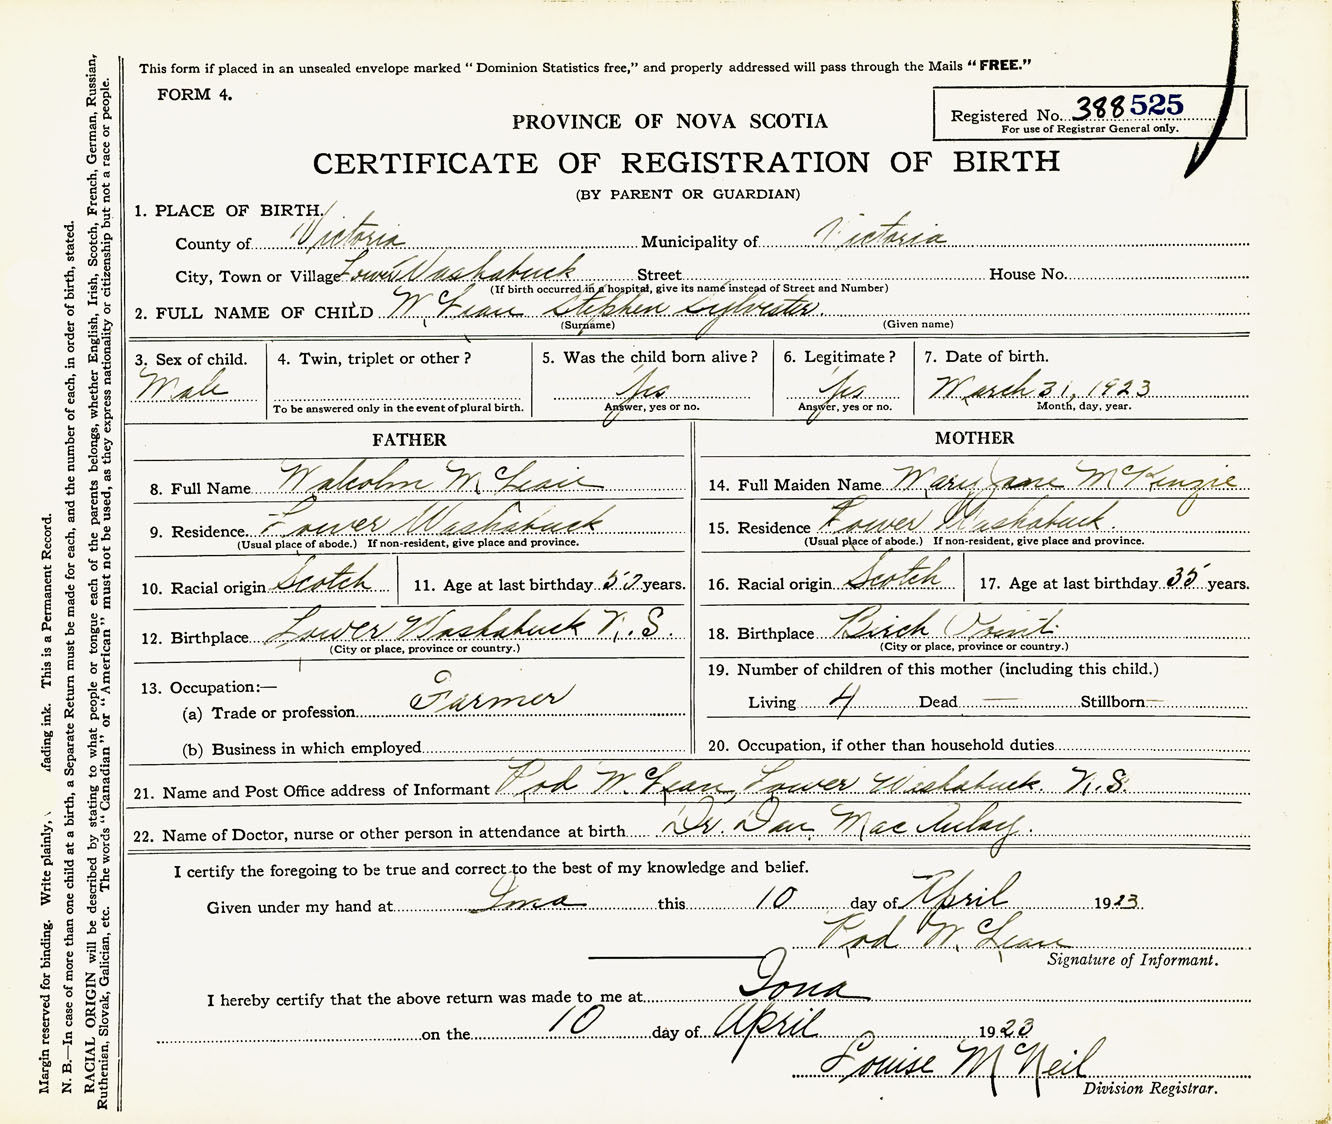 This form if placed in an unsealed envelope marked “ Dominion Statistics free,” and properly addressed will pass through the Mails “ FREE.”
FORM 4.
Registered No. 388525
For use of Registrar General only.
PROVINCE OF NOVA SCOTIA
CERTIFICATE OF REGISTRATION OF BIRTH
(BY PARENT OR GUARDIAN)
1. PLACE OF BIRTH.
County of Victoria Municipality of Victoria
City, Town or Village Lower Washabuck Street House No.
(If birth occurred in a hospital, give its name instead of Street and Number)
2. FULL NAME OF CHILD McLean Stephen Sylvester.
(Surname) (Given name)
3. Sex of child. 4. Twin, triplet or other ? 5. Was the child born alive ? 6. Legitimate ? 7. Date of birth.
Male Yes Yes March 31, 1923
To be answered only in the event of plural birth. Answer, yes or no. Answer, yes or no. Month, day, year.
FATHER MOTHER
8. Full Name Malcolm McLean 14. Full Maiden Name Mary Jane McKenzie
9. Residence. Lower Washabuck 15. Residence Lower Washabuck.
(Usual place of abode.) If non-resident, give place and province. (Usual place of abode.) If non-resident, give place and province.
10. Racial origin Scotch 11. Age at last birthday years. 16. Racial origin Scotch 17. Age at last birthday 35 years.
12. Birthplace Lower Washabuck N.S. 18. Birthplace Birch Point.
(City or place, province or country.) (City or place, province or country.)
19. Number of children of this mother (including this child.)
13. Occupation:—
(a) Trade or profession Farmer Living 4 Dead — Stillborn —
(b) Business in which employed 20. Occupation, if other than household duties
21. Name and Post Office address of Informant Rod McLean, Lower Washabuck. N.S.
22. Name of Doctor, nurse or other person in attendance at birth Dr. Dan MacAulay.
I certify the foregoing to be true and correct to the best of my knowledge and belief.
Given under my hand at Iona this 10 day of April 1923.
Rod McLean
Signature of Informant.
I hereby certify that the above return was made to me at Iona
on the 10 day of April 1923
Louise McNeil
Division Registrar.
Margin reserved for binding. Write plainly, fading ink. This is a Permanent Record.
N. B.—In case of more than one child at a birth, a Separate Return must be made for each, and the number of each, in order of birth, stated.
RACIAL ORIGIN will be described by stating to what people or tongue each of the parents belongs, whether English, Irish, Scotch, French, German, Russian,
Ruthenian, Slovak, Galician, etc. The words “ Canadian ” or “ American ” must not be used, as they express nationality or citizenship but not a race or people.